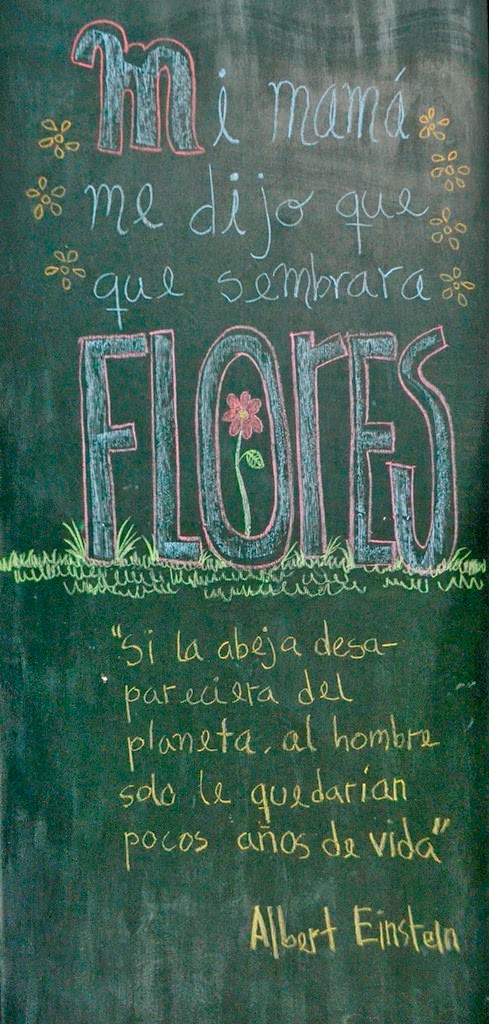 Mi mamá
me dijo que
que sembrara
FLORES
"Si la abeja desa-
pareciera del
planeta, al hombre
solo le quedarían
pocos años de vida"
Albert Einstein